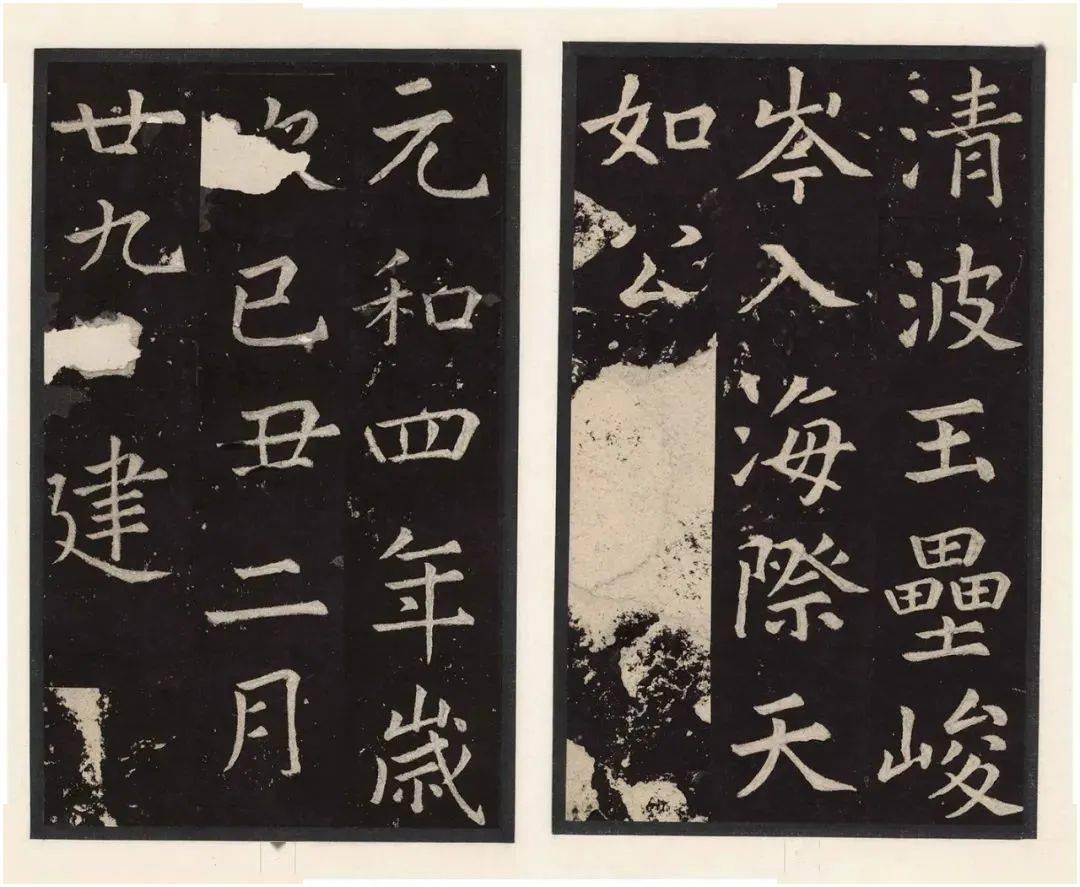 清波王壘峻
岑入海際天
如公
元和四年歲
次己丑二月
廿九建